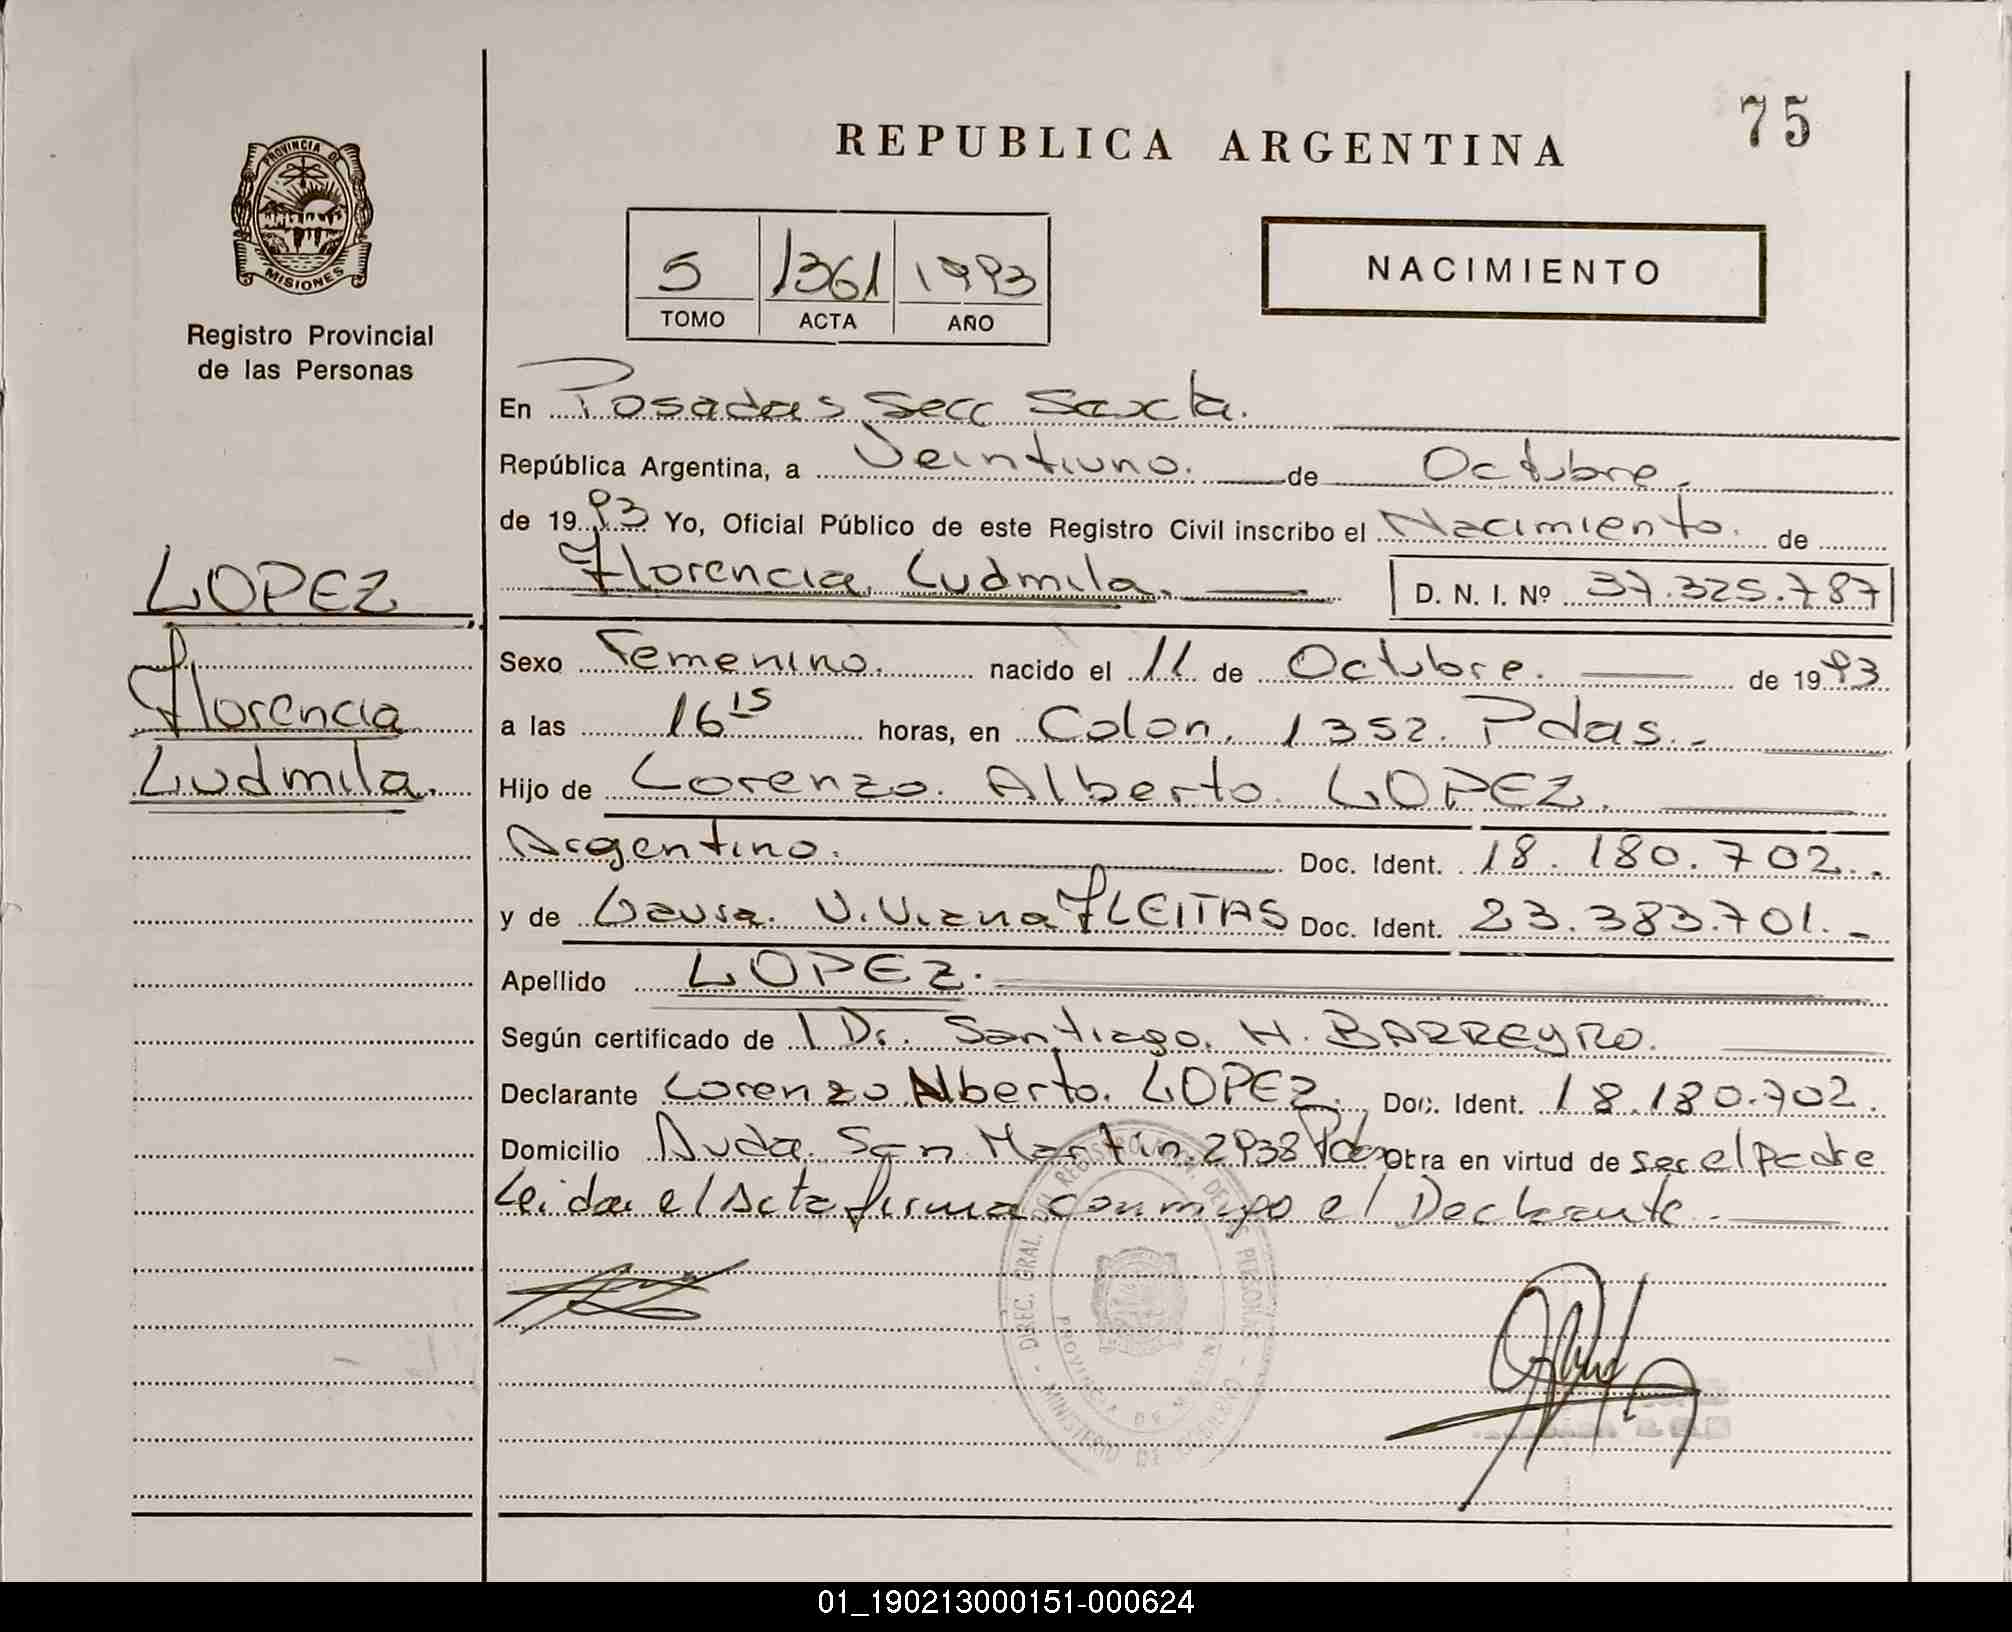 75
REPUBLICA ARGENTINA
PROVINCIA DE
MISIONES
Registro Provincial
de las Personas
NACIMIENTO
5 1361 1993
TOMO ACTA AÑO
En Posadas Secc Sexta.
República Argentina, a Veintiuno. de Octubre.
de 1993 Yo, Oficial Público de este Registro Civil inscribo el Nacimiento. de
Florencia Ludmila. D. N. I. Nº 37.325.787
LOPEZ
Florencia
Ludmila.
Sexo Femenino. nacido el 11 de Octubre. de 1993
a las 16 15 horas, en Colon. 1352. Pdas.
Hijo de Lorenzo. Alberto. LOPEZ.
Argentino. Doc. Ident. 18.180.702.
y de Laura. Viviana FLEITAS Doc. Ident. 23.383.701.
Apellido LOPEZ.
Según certificado de Dr. Santiago. H. BARREYRO.
Declarante Lorenzo Alberto. LOPEZ. Doc. Ident. 18.180.702.
Domicilio Avda. San Martin. 2938 Pdas Obra en virtud de ser el padre
Leida el Acta firma conmigo el Declarante.
DIREC. GRAL. DEL REGISTRO DE LAS PERSONAS
PROVINCIA DE MISIONES
MINISTERIO DE GOBIERNO
01_190213000151-000624